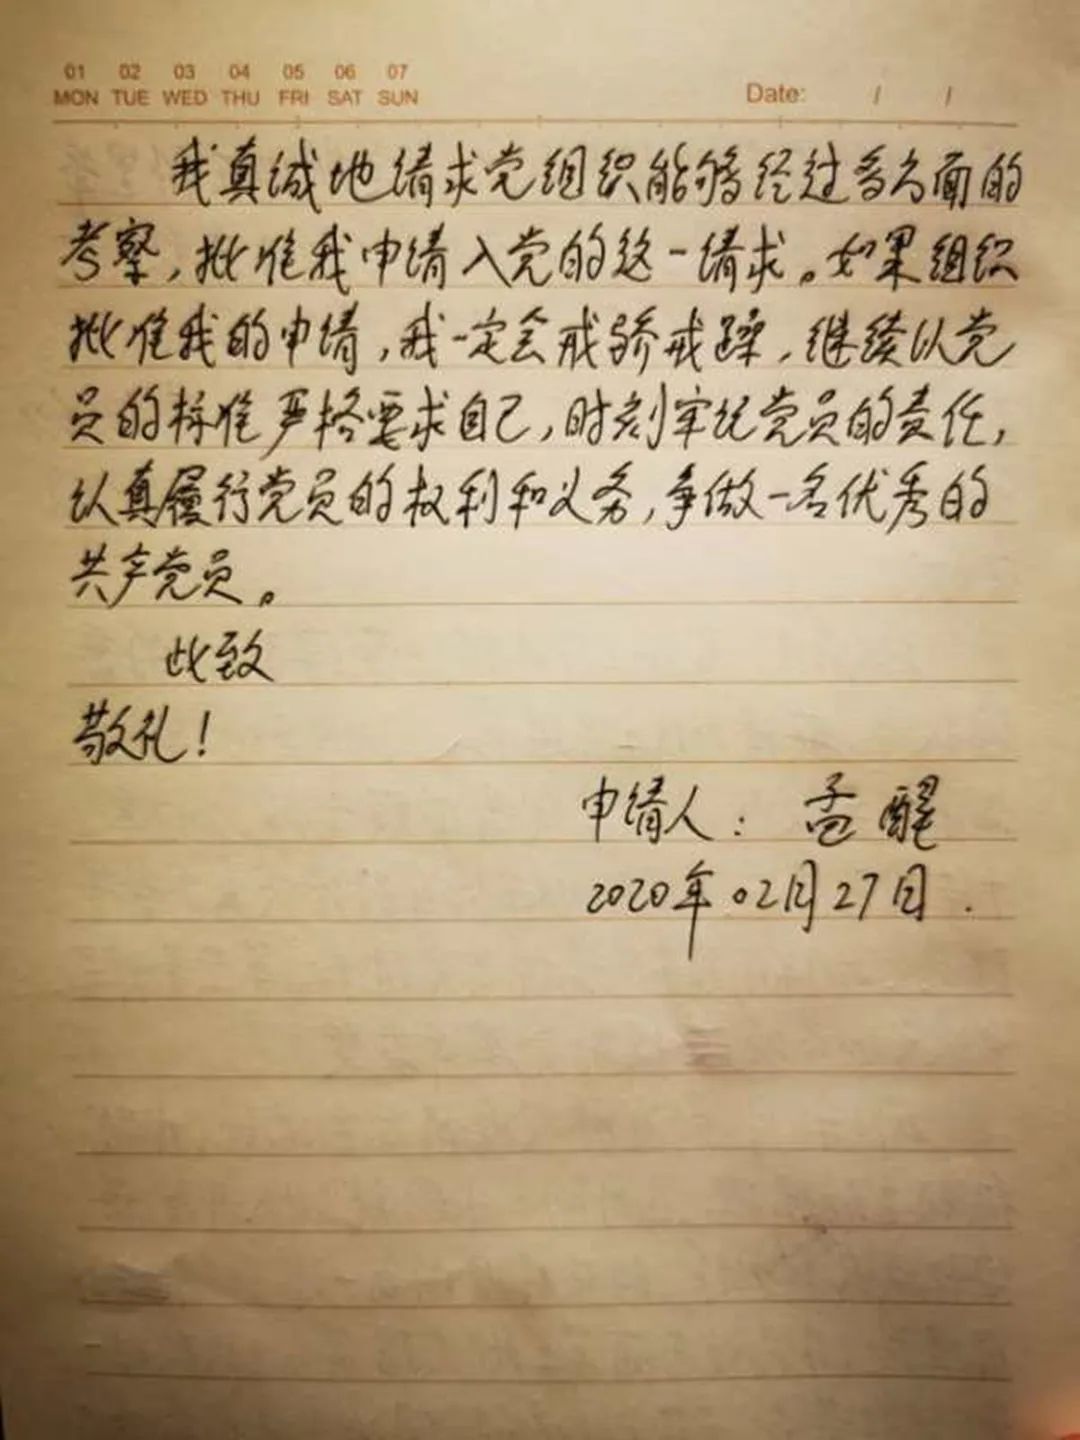 01 02 03 04 05 06 07
MON TUE WED THU FRI SAT SUN
Date: / /
我真诚地请求党组织能够经过多方面的
考察，批准我申请入党的这一请求。如果组织
批准我的申请，我一定会戒骄戒躁，继续以党
员的标准严格要求自己，时刻牢纪党员的责任，
认真履行党员的权利和义务，争做一名优秀的
共产党员。
此致
敬礼！
申请人：孟醒
2020年02月27日.